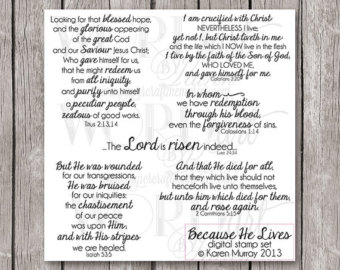 Looking for that blessed hope,
and the glorious appearing
of the great God
and our Saviour Jesus Christ;
Who gave himself for us,
that he might redeem us
from all iniquity,
and purify unto himself
a peculiar people,
zealous of good works.
Titus 2:13,14
I am crucified with Christ
NEVERTHELESS I live;
yet not I, but Christ liveth in me:
and the life which I NOW live in the flesh
I live by the faith of the Son of God,
WHO LOVED ME,
and gave himself for me
Galatians 2:20
In whom
we have redemption
through his blood,
even the forgiveness of sins.
Colossians 1:14
...The Lord is risen indeed...
Luke 24:34
But He was wounded
for our transgressions,
He was bruised
for our iniquities:
the chastisement
of our peace
was upon Him;
and with His stripes
we are healed.
Isaiah 53:5
And that He died for all,
that they which live should not
henceforth live unto themselves,
but unto him which died for them,
and rose again.
2 Corinthians 5:15
Because He Lives
digital stamp set
© Karen Murray 2013